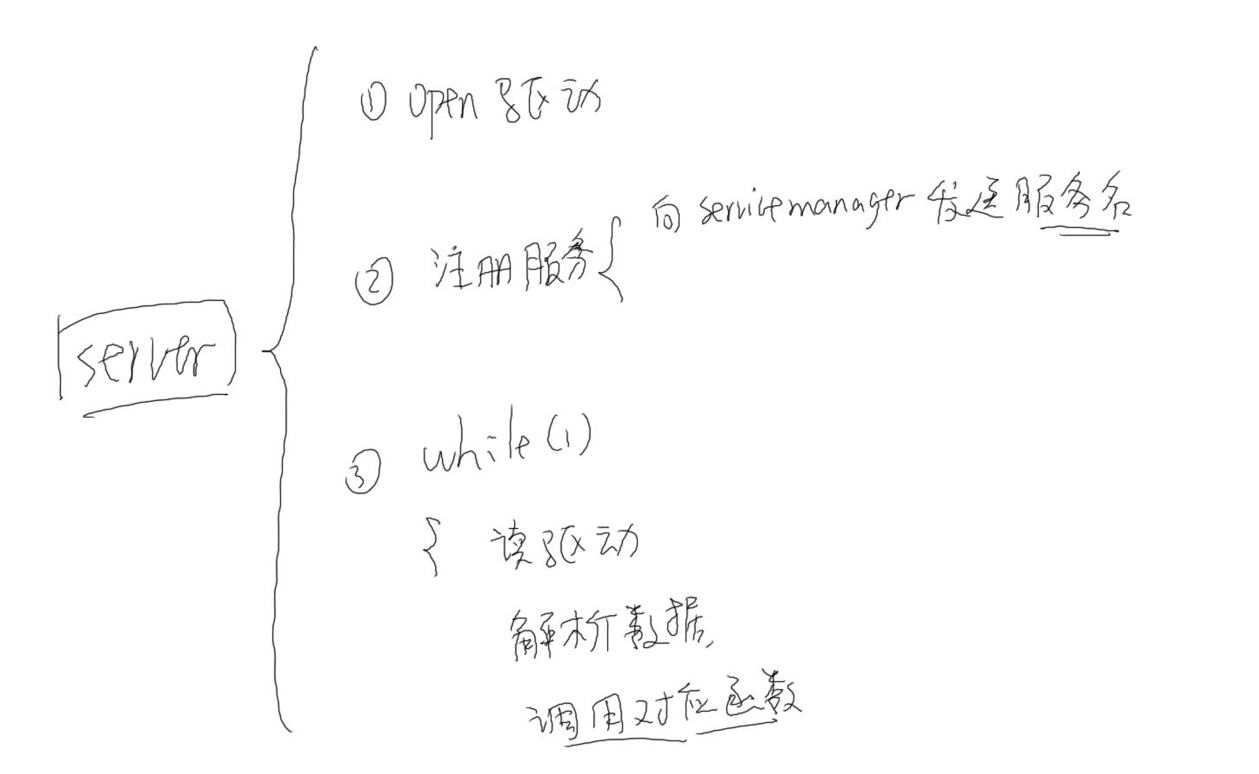 server
① open 驱动
② 注册服务{
向 servicemanager 发送服务名
③ while(1)
{ 读驱动
解析数据,
调用对应函数